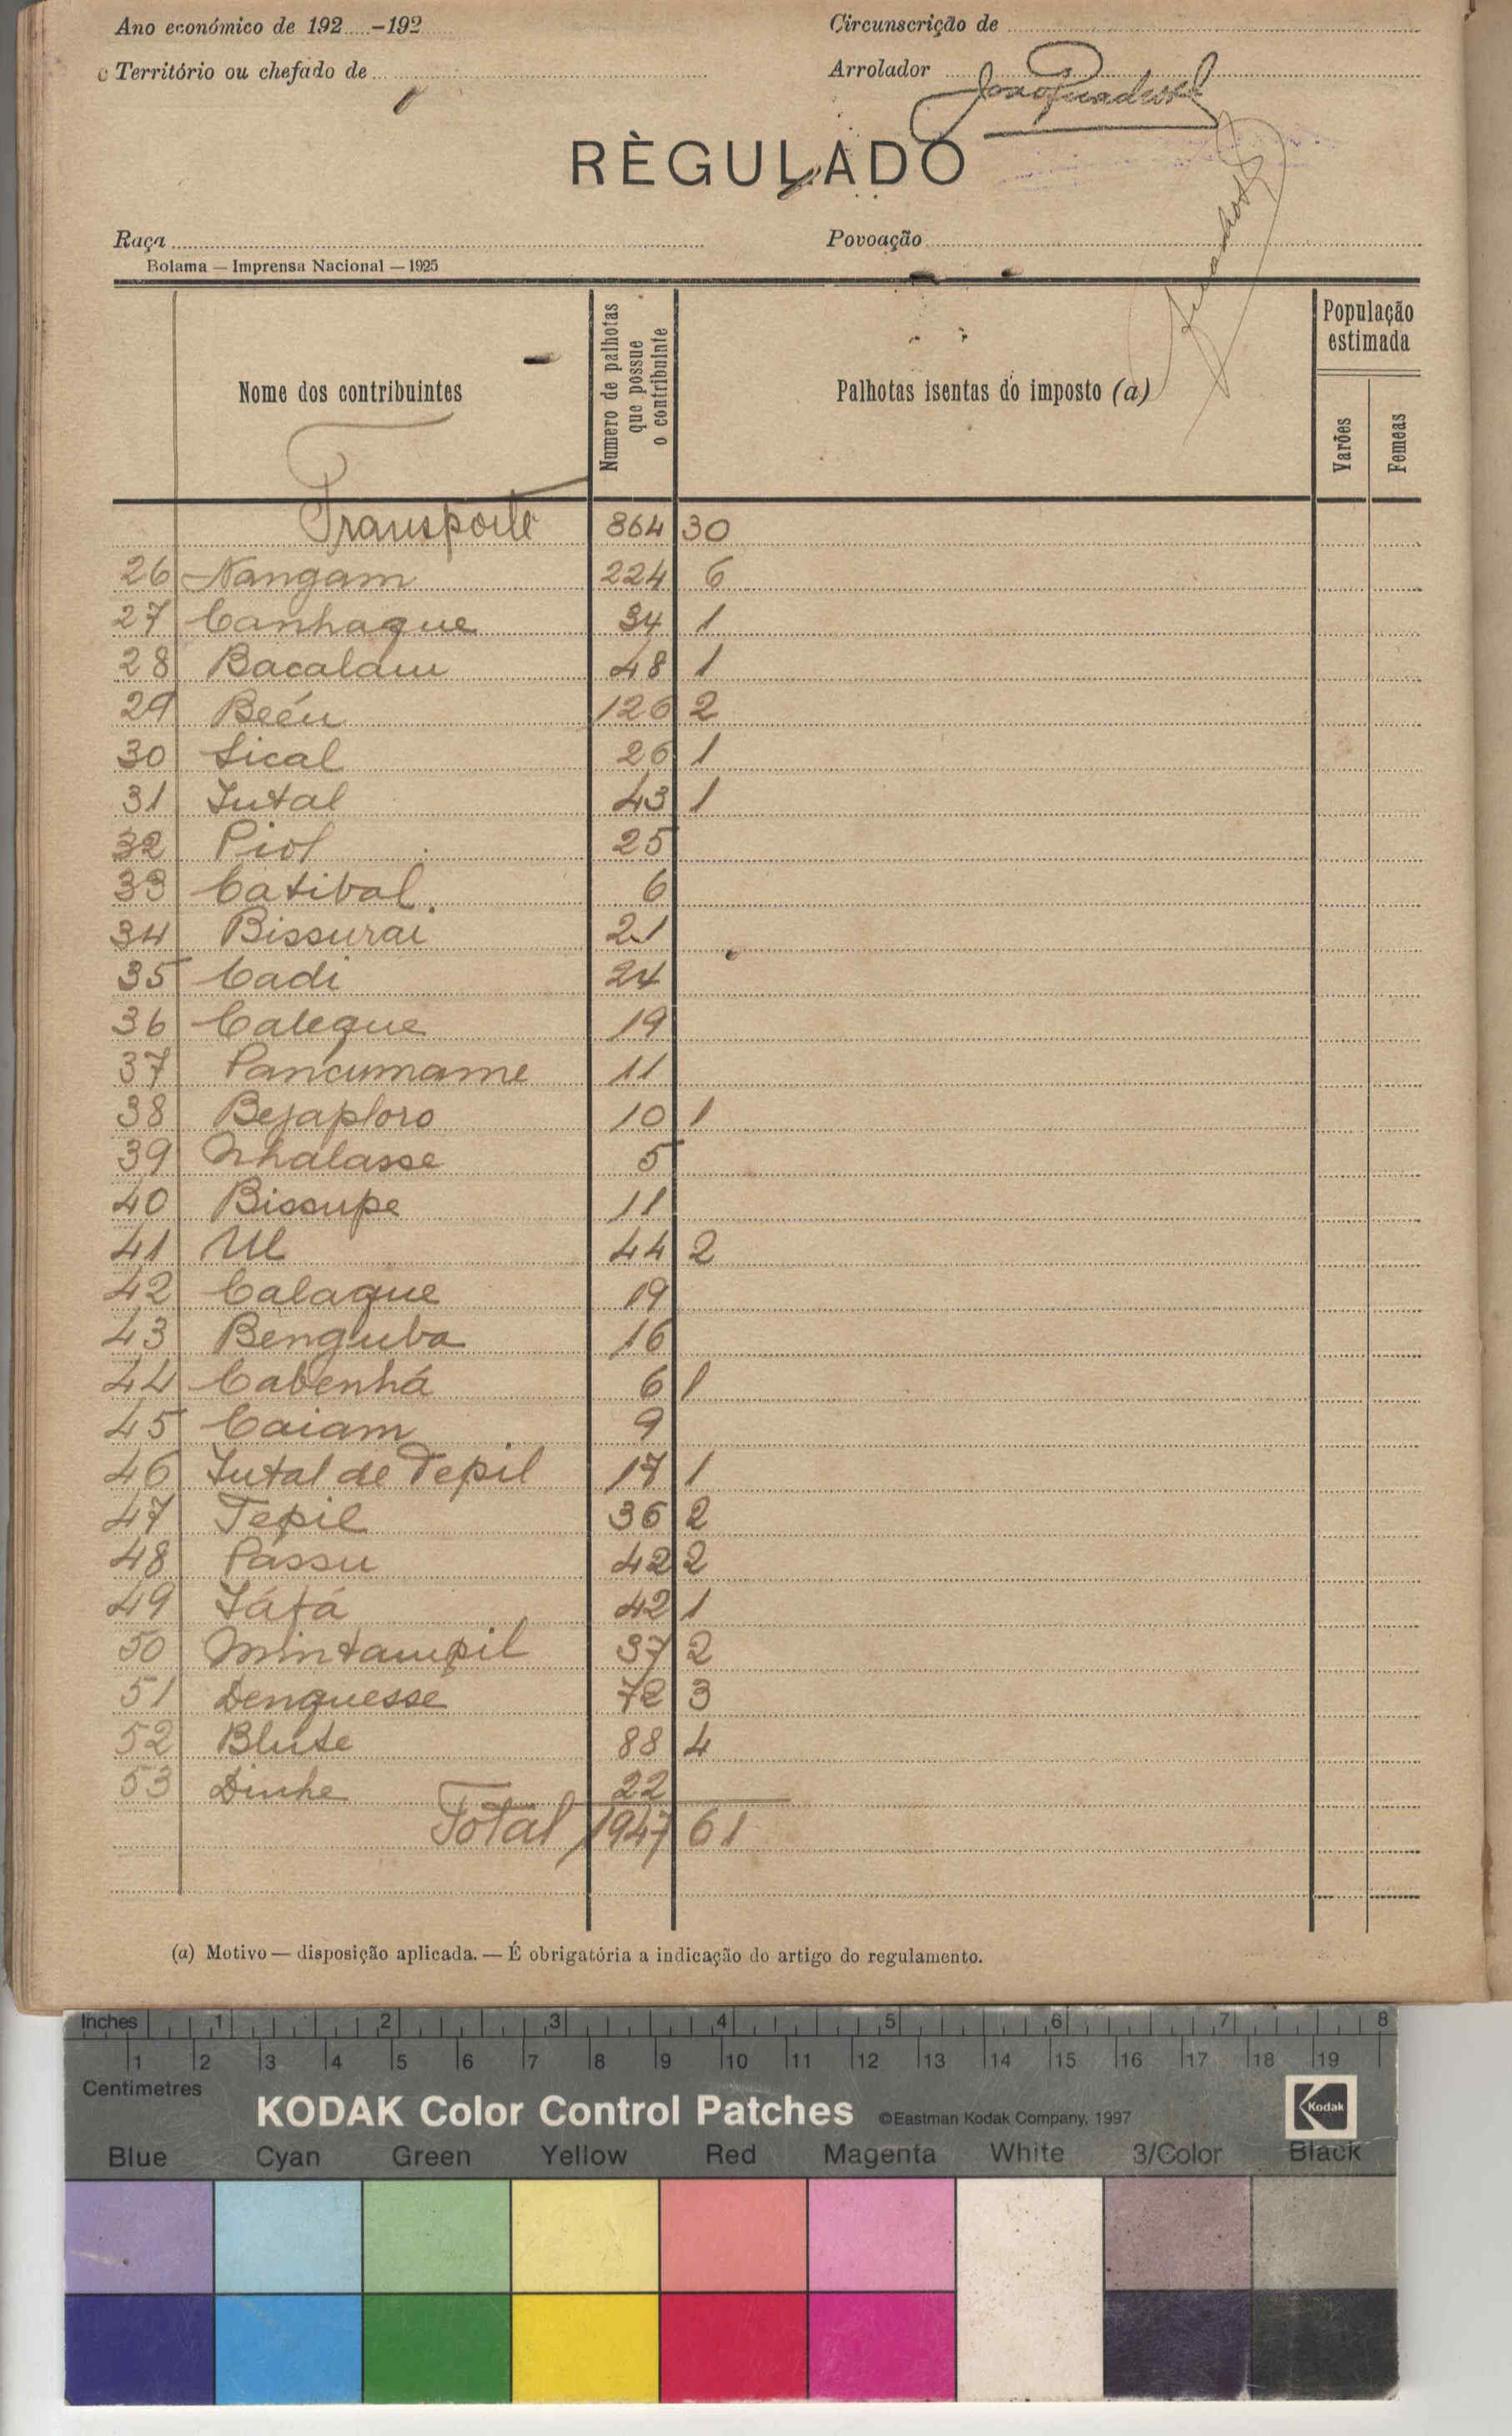 Ano económico de 192.....-192..... Circunscrição de
Território ou chefado de Arrolador
RÈGULADO
Raça Povoação
Bolama — Imprensa Nacional — 1925
Nome dos contribuintes
Numero de palhotas que possue o contribuinte
Palhotas isentas do imposto (a)
População estimada
Varões
Femeas
Transporte 864 30
26 Nangam 224 6
27 Canhaque 34 1
28 Bacalam 48 1
29 Beéu 126 2
30 Sical 26 1
31 Jutal 43 1
32 Piol 25
33 Catibal. 6
34 Bissurai 21
35 Cadi 24
36 Caleque 19
37 Pancumame 11
38 Bejaploro 10 1
39 Nhalasse 5
40 Bissupe 11
41 Ul 44 2
42 Calaque 19
43 Benguba 16
44 Cabenhá 6 1
45 Caiam 9
46 Jutal de Tepil 17 1
47 Tepil 36 2
48 Passu 42 2
49 Játá 42 1
50 Mintampil 37 2
51 Denguesse 72 3
52 Blute 88 4
53 Dinhe 22
Total 1947 61
(a) Motivo — disposição aplicada. — É obrigatória a indicação do artigo do regulamento.
Inches 1 2 3 4 5 6 7 8
1 2 3 4 5 6 7 8 9 10 11 12 13 14 15 16 17 18 19
Centimetres
KODAK Color Control Patches ©Eastman Kodak Company, 1997 Kodak
Blue Cyan Green Yellow Red Magenta White 3/Color Black